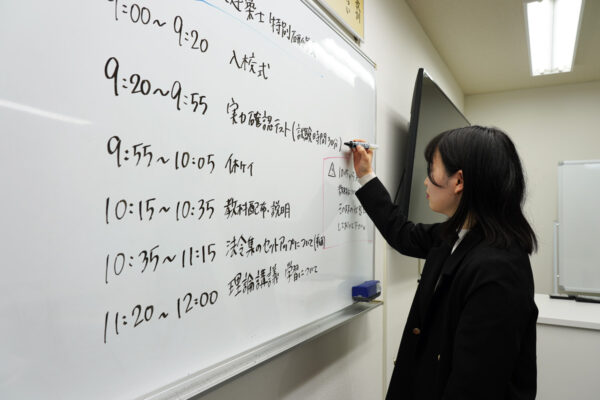 建築士 特別
9:00～9:20 入校式
9:20～9:55 実力確認テスト(試験時間30分)
9:55～10:05 休ケイ
10:15～10:35 教材配布・説明
10:35～11:15 法令集のセットアップについて
11:20～12:00 理論講義 学習について